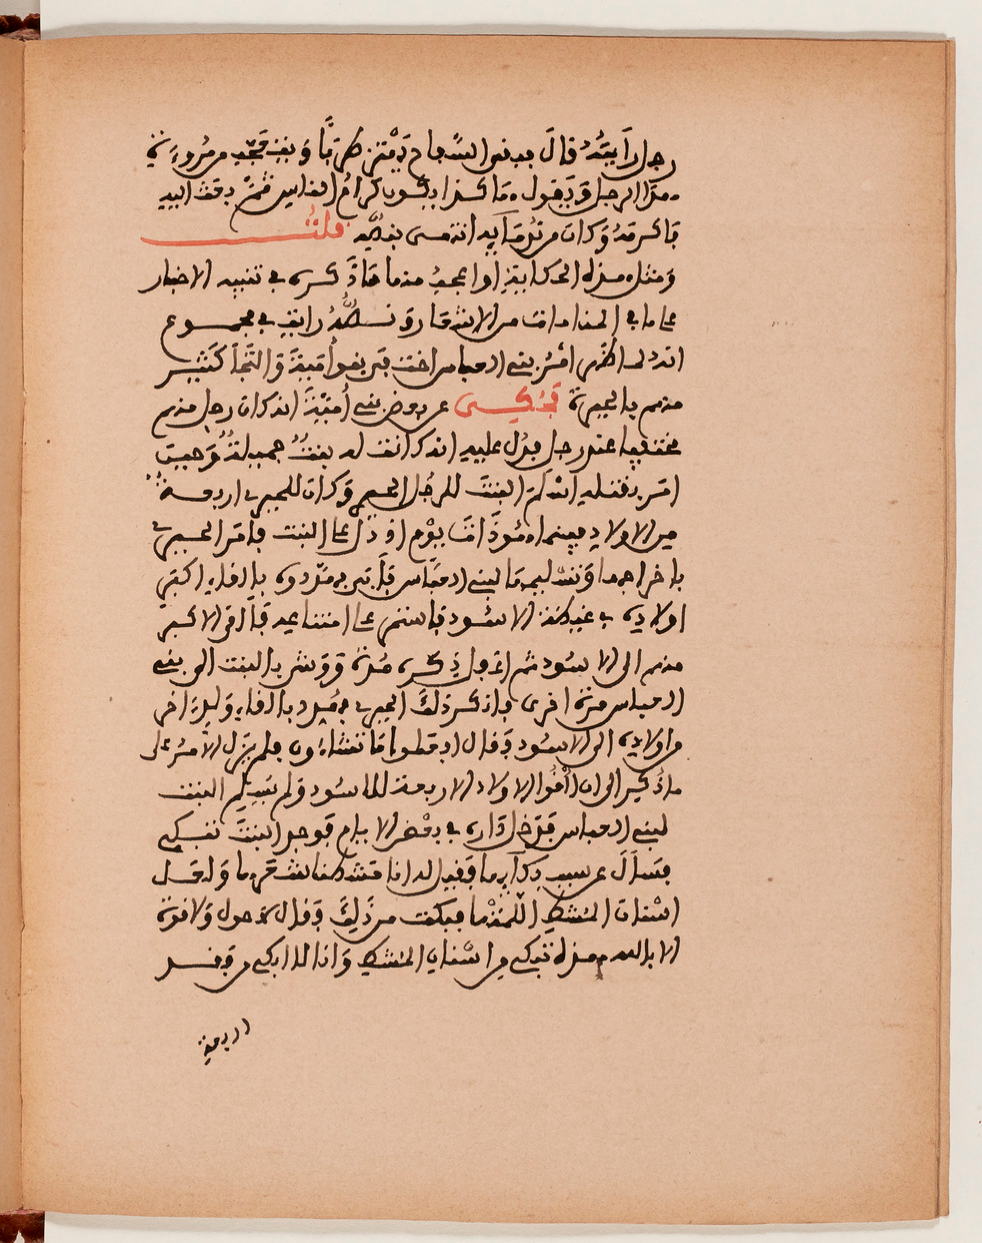 رجل رأيته قال فبقى السفاح يهتز طربا وبقى يعجب من مروءة
هذا الرجل ويقول هكذا يكون كرام الناس ثم بعث اليه
فاكرمه وكان من ندمايه انتهى قلت
ومثل هذه الحكاية او اعجب منها ما ذكره في تنبيه الاخبار
على ما في المنامات من الاشعار ونسله رايته في مجموع
انه لما ظهر امر بني العباس اختفى بنو امية والتجأ كثير
منهم بالحيرة فحكى عن بعض بني أمية انه كان رجل منهم
مختفيا عند رجل فدل عليه انه كانت له بنت جميلة وحين
امر بقتله اسلم البنت للرجل الحيري وكان للحيري اربعة
من الاولاد فبينما هو ذات يوم اذ دل على البنت فامر الحيري
باخراجها وتسليمها لبني العباس فأبى فهددوه بالقاء اكبر
اولاده في غيضة الاسود فاستمر على امتناعه فألقي الاكبر
منهم الى الاسود ثم اغفل ذكره مدة ووشي بالبنت الى بني
العباس مرة اخرى فانكر ذلك الحيري فهدد بالقاء ولد اخر
من اولاده الى الاسود وقال افعلوا ما تشاءون فلم يزل الأمر على
ما ذكر الى ان ألقوا الاولاد الاربعة للاسود ولم يسلم البنت
لبني العباس فدخل داره في بعض الايام فوجد البنت تبكي
فسأل عن سبب بكايها فقيل له انا مشطنا شعرها ولعل
اسنان المشط آلمتها فبكت من ذلك وقال لا حول ولا قوة
الا بالله هذه تبكي من اسنان المشط وانا لا ابكي من فقد
اربعة